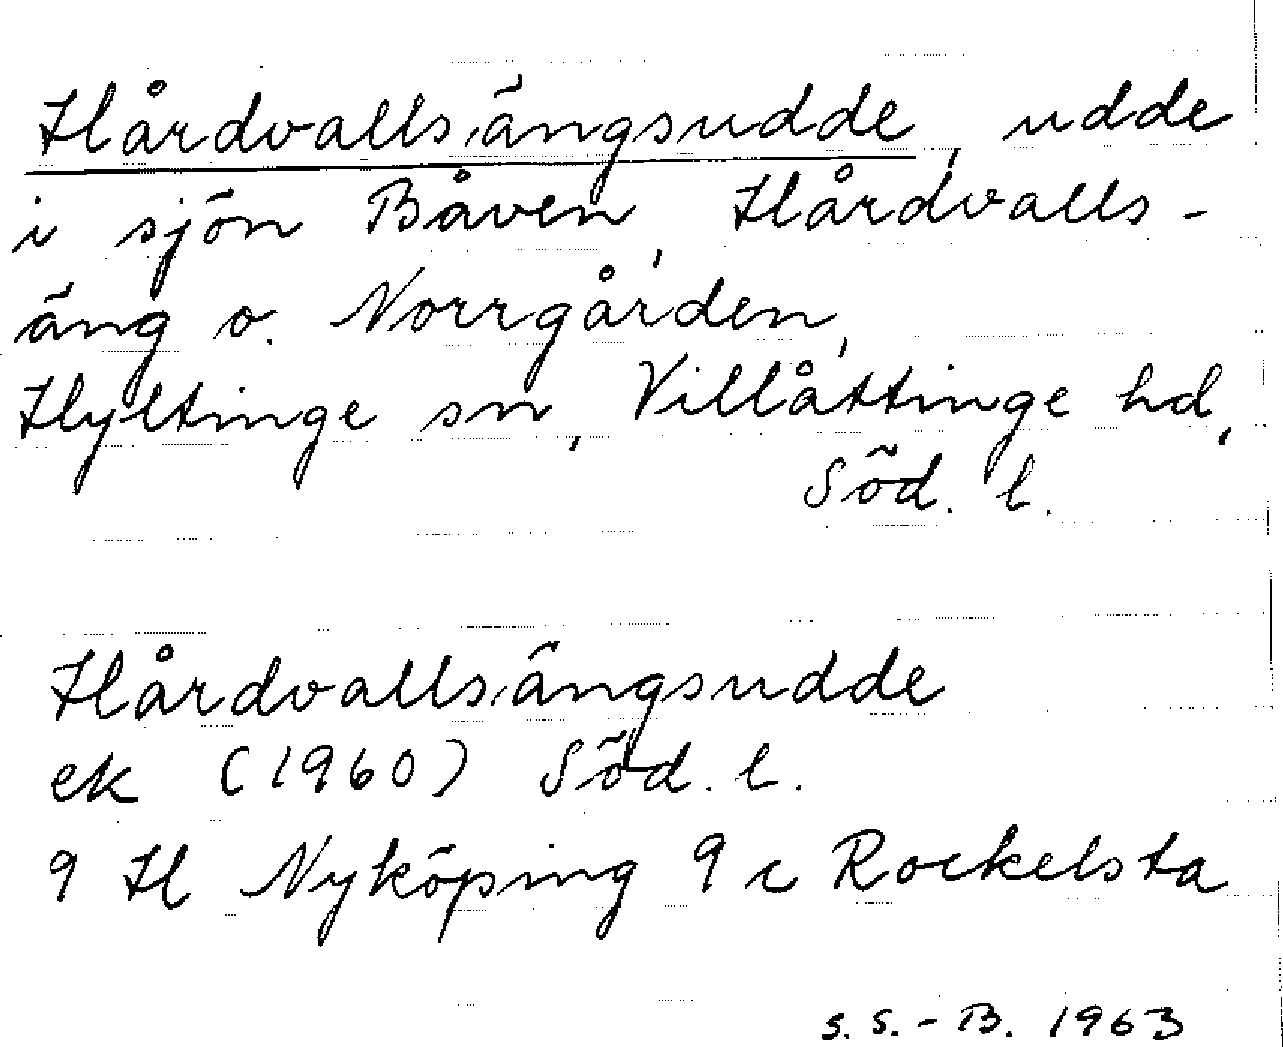 Hårdvallsängsudde, udde
i sjön Båven, Hårdvalls-
äng o. Norrgården,
Hyltinge sn, Villåttinge hd,
Söd. l.
Hårdvallsängsudde
ek (1960) Söd. l.
9 H Nyköping 9 c Rockelsta
S. S.-B. 1963